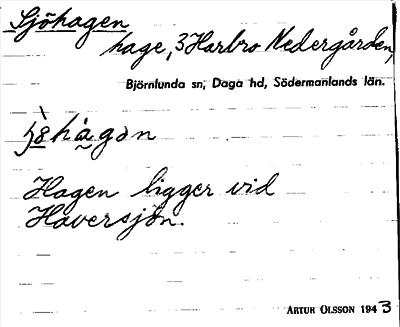 Sjöhagen
hage, 3 Harbro Nedergården,
Björnlunda sn, Daga hd, Södermanlands län.
Hagen ligger vid
Haversjön.
ARTUR OLSSON 1943